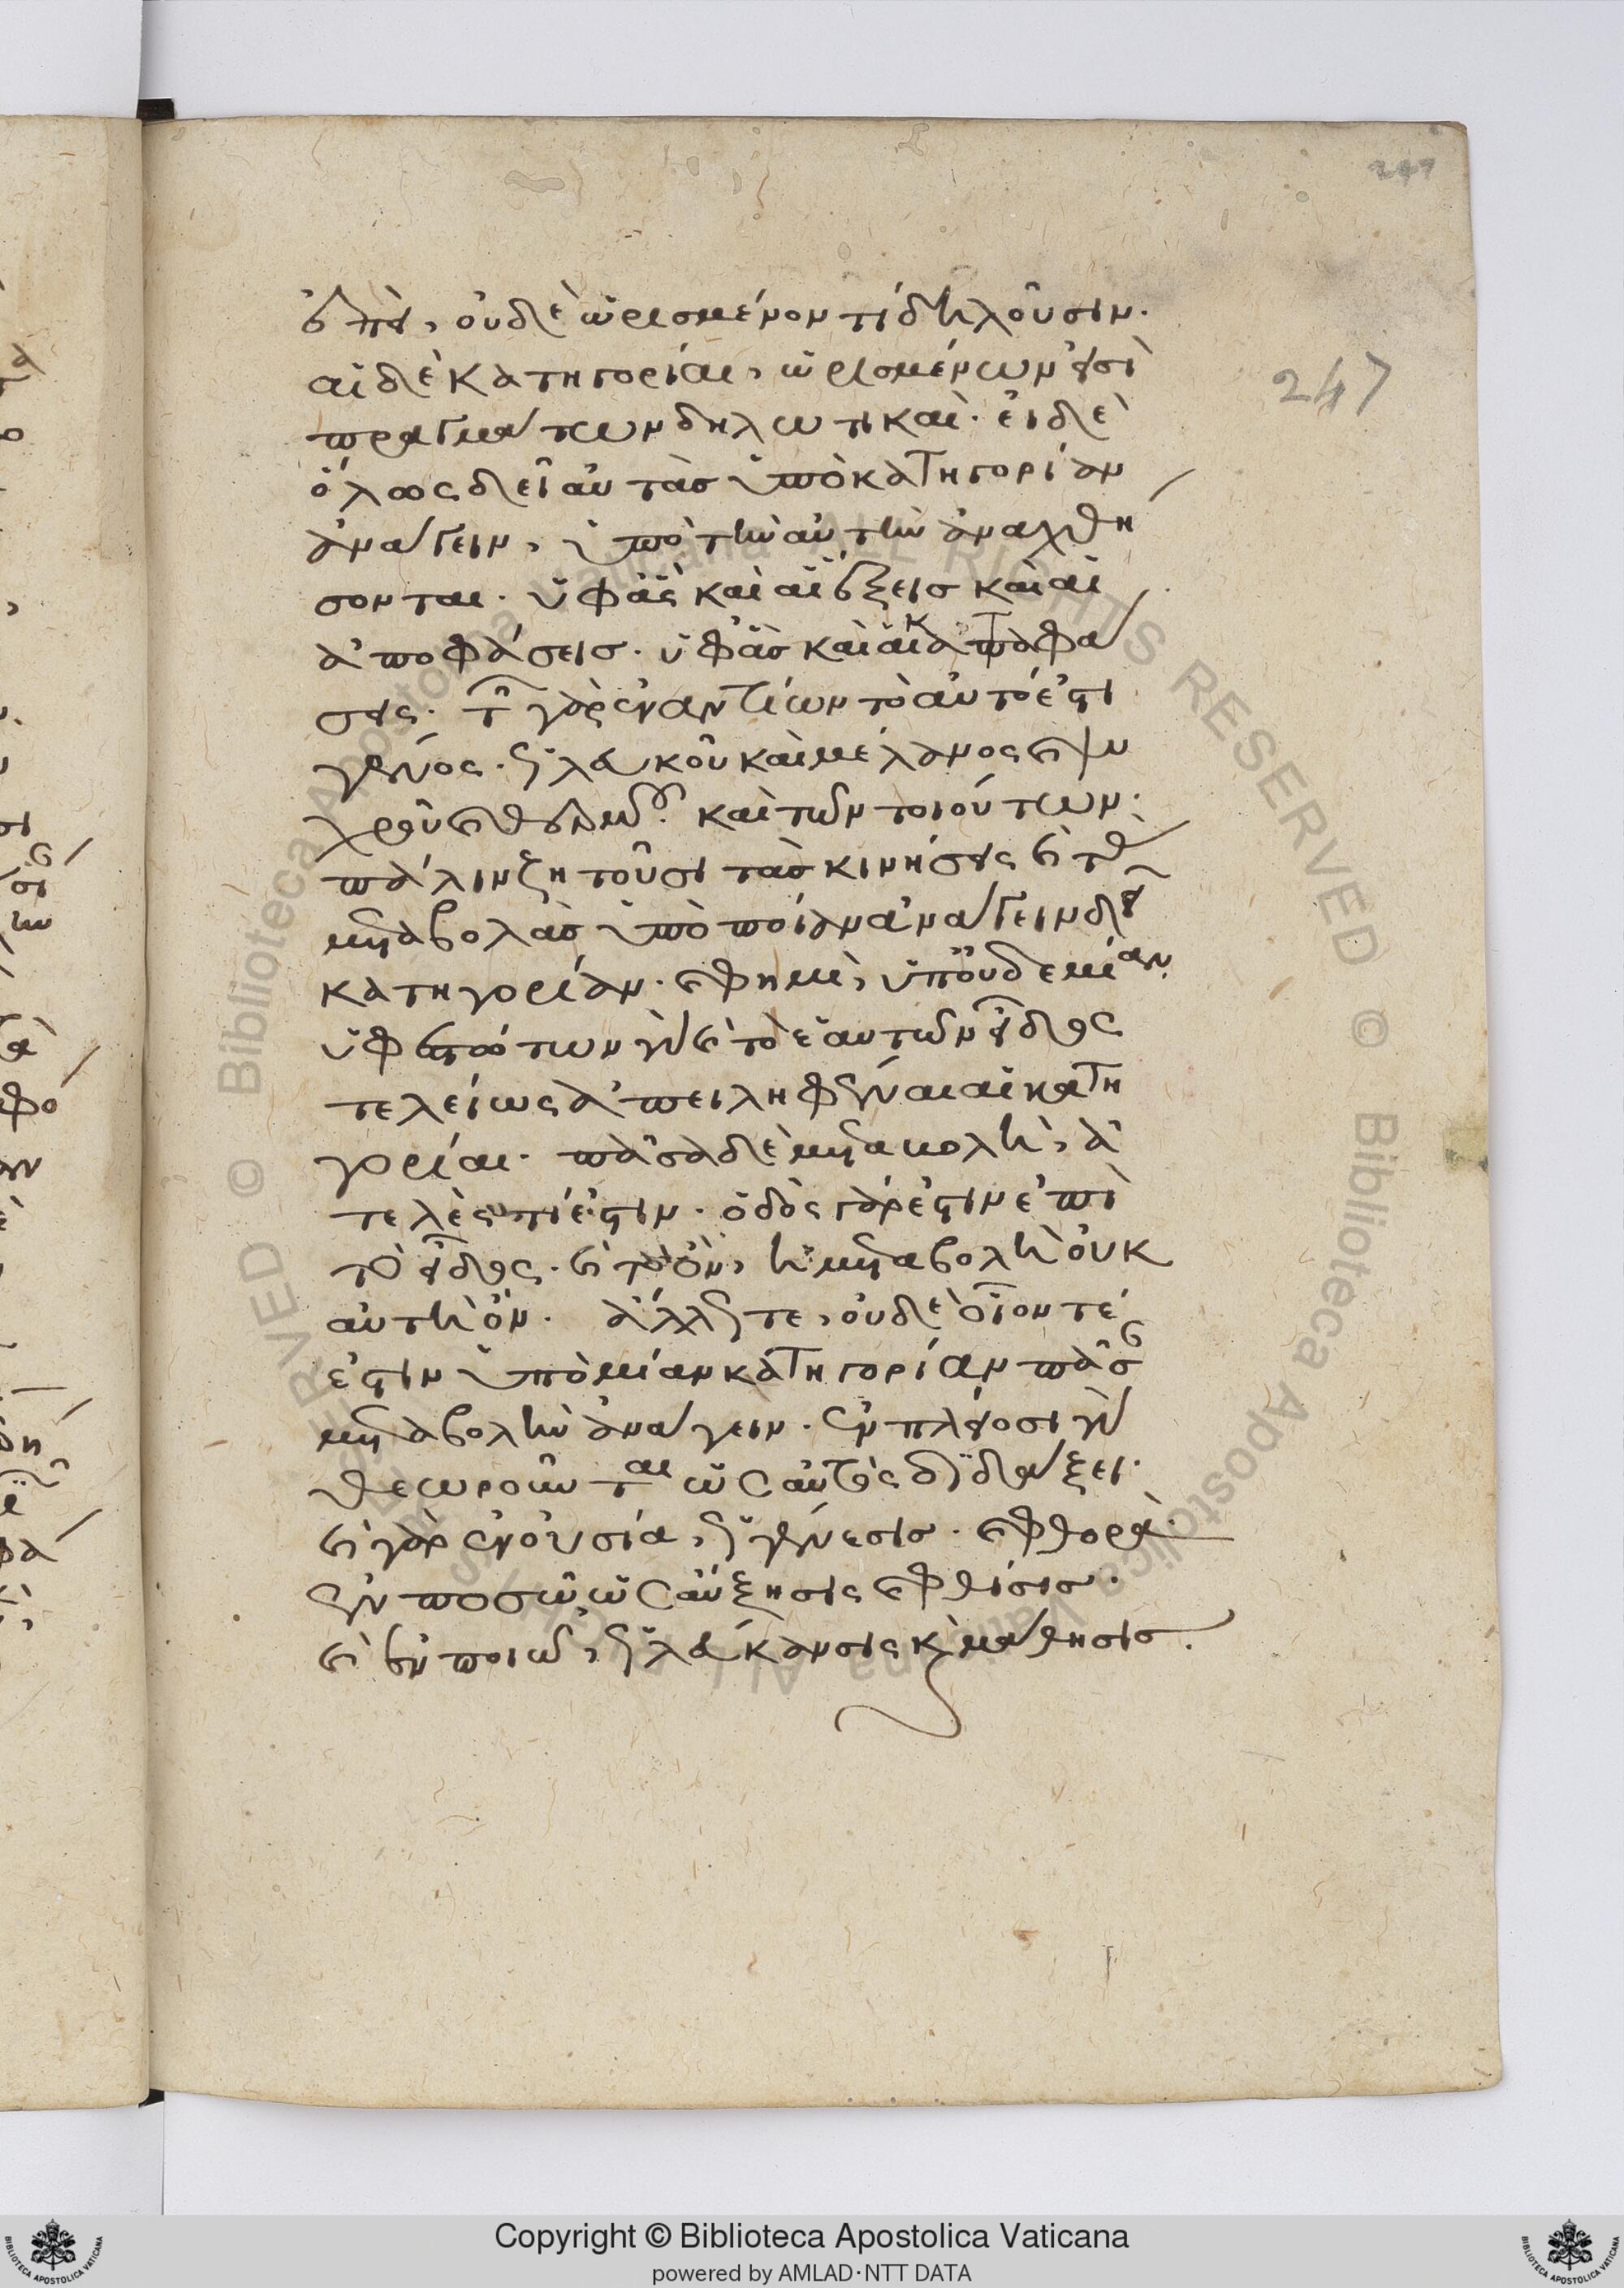 247
ὅτι, οὐδὲ ὡρισμένον τι δηλοῦσιν.
αἱ δὲ κατηγορίαι, ὡρισμένων εἰσὶ
247
πραγμάτων δηλωτικαὶ. εἰ δὲ
ὅλως δεῖ αὐτὰς ὑπὸ κατηγορίαν
ἀνάγειν, ὑπὸ τὴν αὐτὴν ἀναχθή
σονται. ὑφ' ἃς καὶ αἱ ἕξεις καὶ αἱ
ἀποφάσεις. ὑφ' ἃς καὶ αἱ καταφά
σεις. τῶν γὰρ ἐναντίων τὸ αὐτό ἐστι
γένος. λευκοῦ καὶ μέλανος καὶ ψυ
χροῦ καὶ θερμοῦ. καὶ τῶν τοιούτων.
πάλιν ζητοῦσι τὰς κινήσεις καὶ τὰς
μεταβολὰς ὑπὸ ποίαν ἀνάγειν δεῖ
κατηγορίαν. καὶ φημὶ, ὑπ' οὐδεμίαν.
ὑφεστώτων γὰρ καὶ τὸ ἑαυτῶν εἶδος
τελείως ἀπειληφέναι αἱ κατη
γορίαι. πᾶσα δὲ μεταβολὴ, ἀ
τελές τί ἐστιν. ὁδὸς γάρ ἐστιν ἐπὶ
τὸ εἶδος. καὶ τὸ ὂν, ἡ μεταβολὴ οὐκ
αὐτὴ ὄν. ἄλλως τε, οὐδὲ οἷόν τέ
ἐστιν ὑπὸ μίαν κατηγορίαν πᾶσαν
μεταβολὴν ἀνάγειν. ἐν πλείοσι γὰρ
θεωροῦνται ὡς αὐτὸς διδάξει.
καὶ γὰρ ἐν οὐσία, ἡ γένεσις. καὶ φθορὰ.
ἐν ποσῶ ὡς αὔξησις καὶ φθίσις.
καὶ ἐν ποιῶ, ἡ λεύκανσις καὶ μάθησις.
Copyright © Biblioteca Apostolica Vaticana
powered by AMLAD·NTT DATA